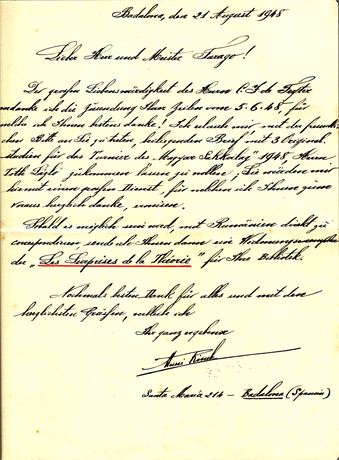 Badalona, den 21 August 1948
Lieber Herr und Meister Farago!
Der großen Liebenswürdigkeit des Herrn
verdanke ich die Zusendung Ihrer Zeilen vom 5-6-48, für
welche ich Ihnen bestens danke! Ich erlaube mir, mit der freundli-
chen Bitte an Sie zu treten, beiliegenden Brief mit 3 Original-
studien für das Turnier des "Magyar Sakkvilag" 1948, Herrn
Toth zukommen lassen zu wollen, Sie würden mir
hiermit einen großen Dienst, für welchen ich Ihnen gerne
voraus herzlich danke, erweisen.
Sobald es möglich sein wird, mit Rumänien direkt zu
correspondieren, sende ich Ihnen dann ein Widmungsexemplar
der "Les Surprises de la Théorie" für Ihre Bibliothek.
Nochmals besten Dank für alles und mit den
herzlichsten Grüßen, verbleibe ich
Ihr ganz ergebener
Santa Maria 214 - Badalona (Spanien)